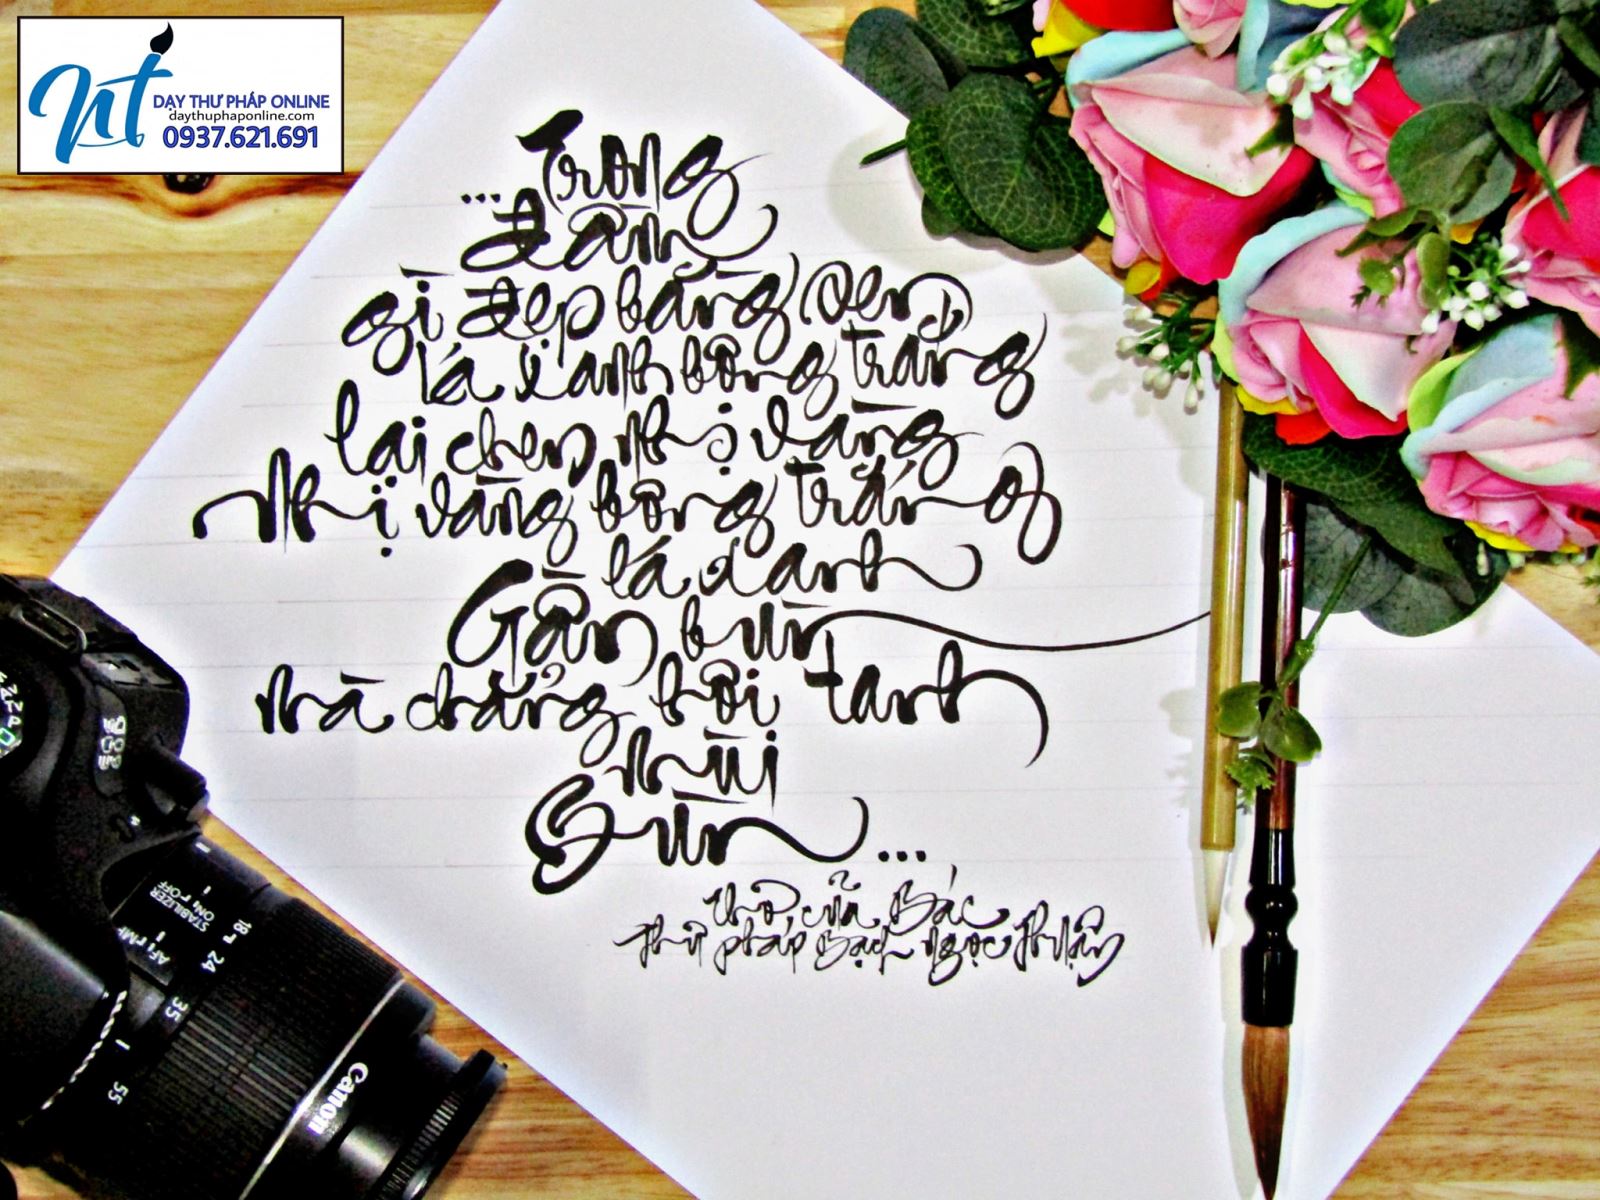 NT
DẠY THƯ PHÁP ONLINE
daythuphaponline.com
0937.621.691
...Trong
đầm
gì đẹp bằng sen
lá xanh bông trắng
lại chen nhị vàng
Nhị vàng bông trắng
lá xanh
Gần bùn
mà chẳng hôi tanh
mùi
Bùn...
thơ của Bác
Thư pháp Bạch Ngọc Thuận
STABILIZER
ON OFF
AF MF
18 24 35 55
Canon